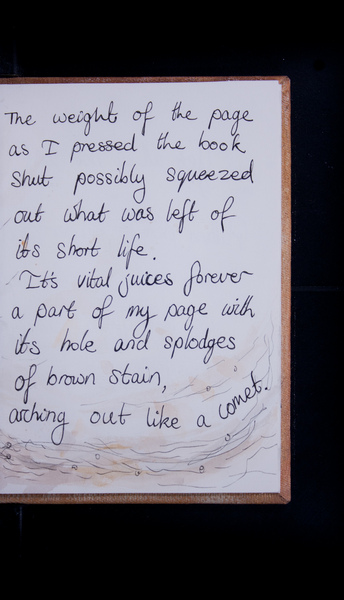 The weight of the page
as I pressed the book
shut possibly squeezed
out what was left of
its short life.
It's vital juices forever
a part of my page with
its hole and splodges
of brown stain,
arching out like a comet.